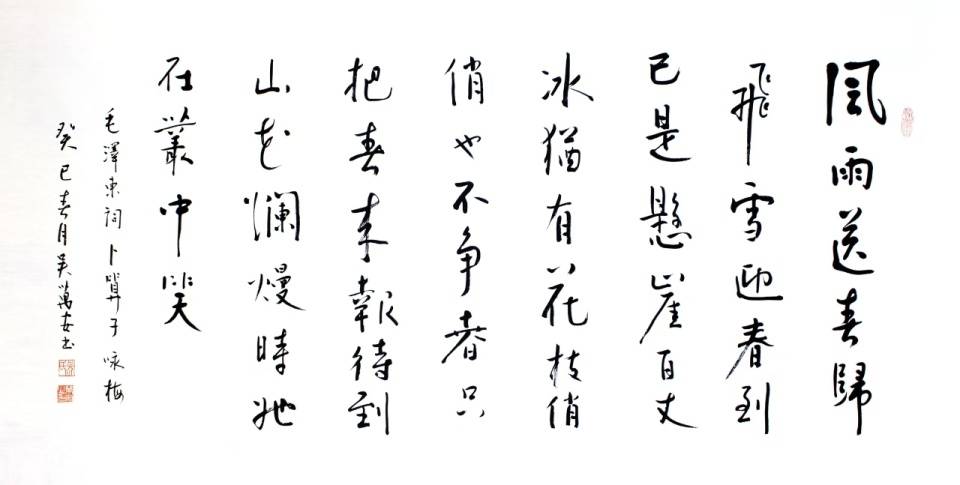 風雨送春歸
飛雪迎春到
已是懸崖百丈
冰猶有花枝俏
俏也不争春只
把春来報待到
山花爛熳時她
在叢中笑
毛澤東詞卜筭子咏梅
癸巳春月吴萬安书